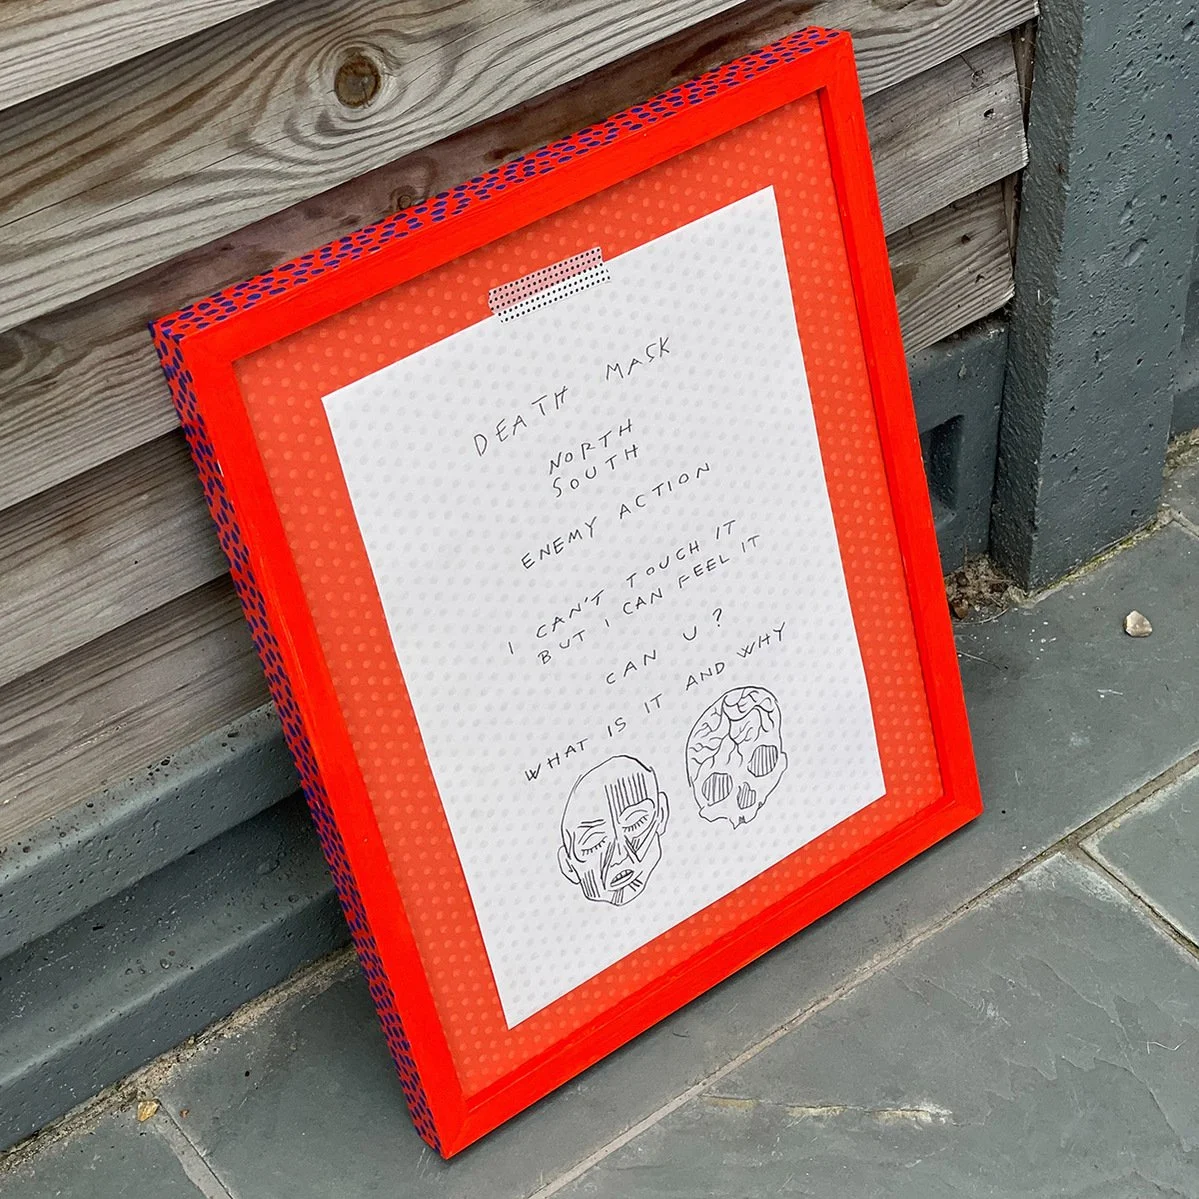 DEATH MASK
NORTH
SOUTH
ENEMY ACTION
I CAN'T TOUCH IT
BUT I CAN FEEL IT
CAN U?
WHAT IS IT AND WHY